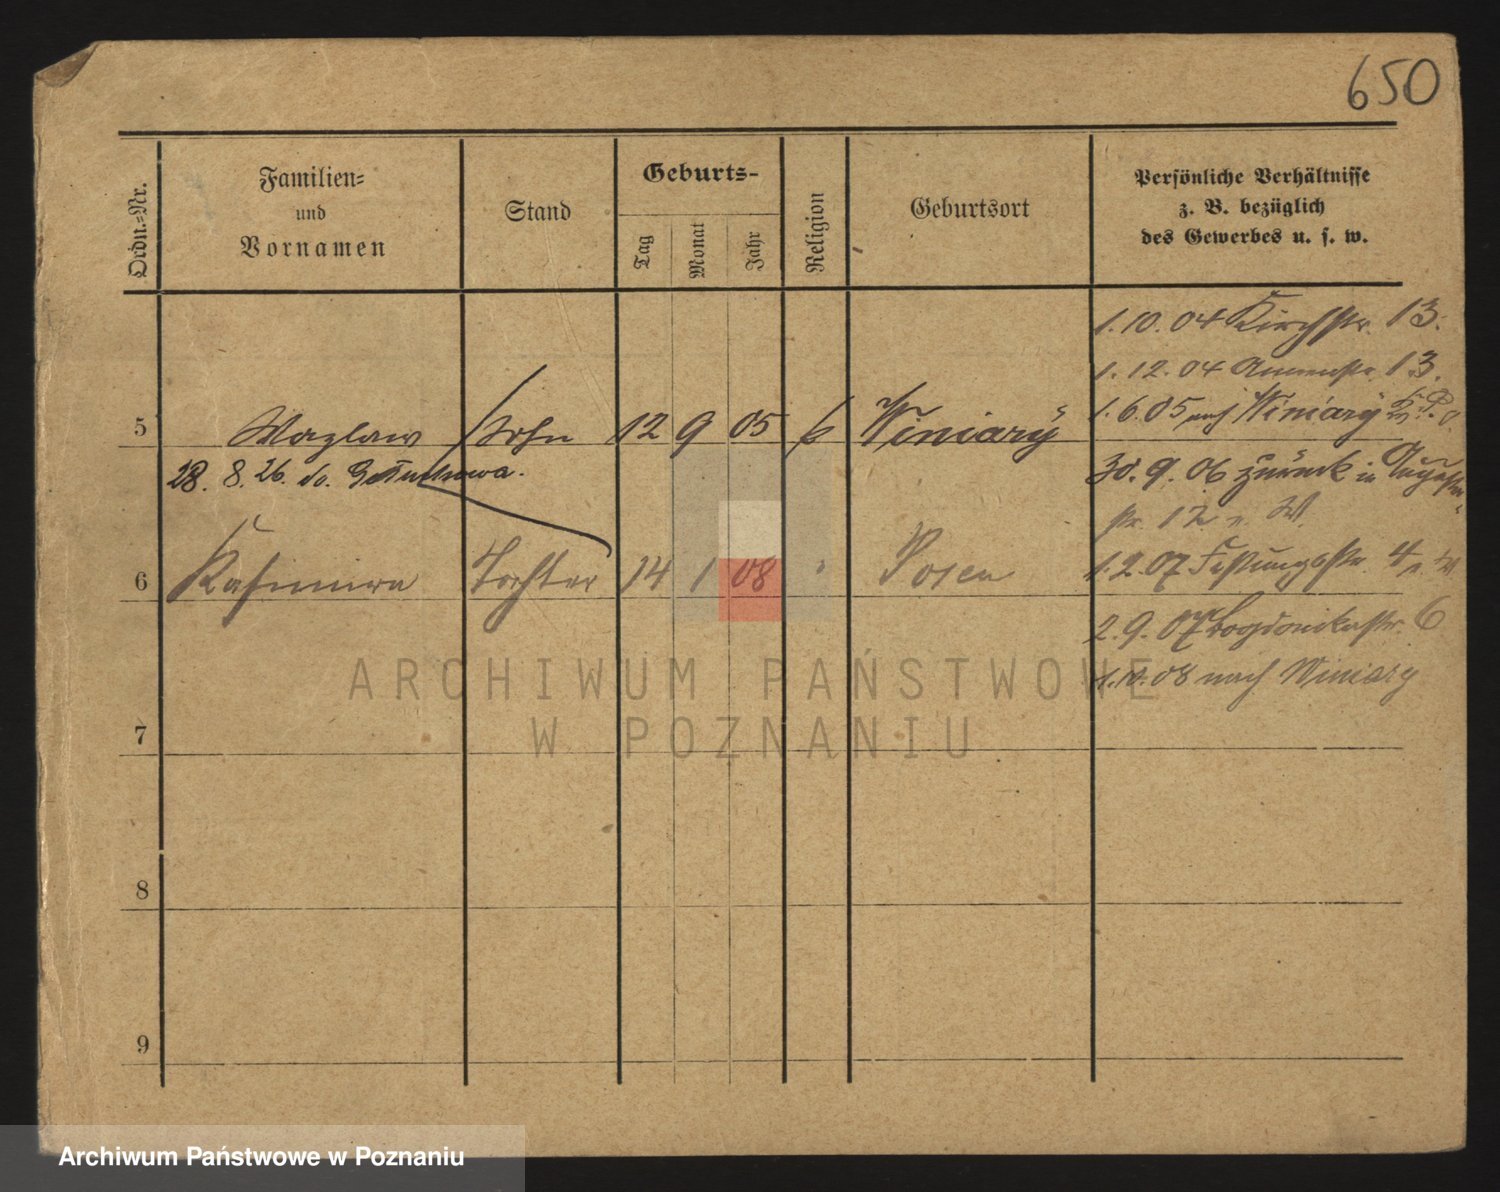 650
Ordn.=Nr.
Familien=
und
Vornamen
Stand
Geburts-
Tag
Monat
Jahr
Religion
Geburtsort
Persönliche Verhältnisse
z. B. bezüglich
des Gewerbes u. s. w.
1.10.04 Kirchstr. 13.
1.12.04 Annenstr. 13.
1.6.05 nach Winiary Kr. P. O.
5 Wazlaw Sohn 12 9 05 k Winiary
28. 8. 26. do
30.9.06 zurück in
str. 12 n. W.
6 Kasimira Tochter 14 1 08 " Posen
1.2.07 Festungsstr. 4 n. W
2.9.07 Bogdankastr. 6
1.10.08 nach Winiary
7
8
9
ARCHIWUM PAŃSTWOWE
W POZNANIU
Archiwum Państwowe w Poznaniu